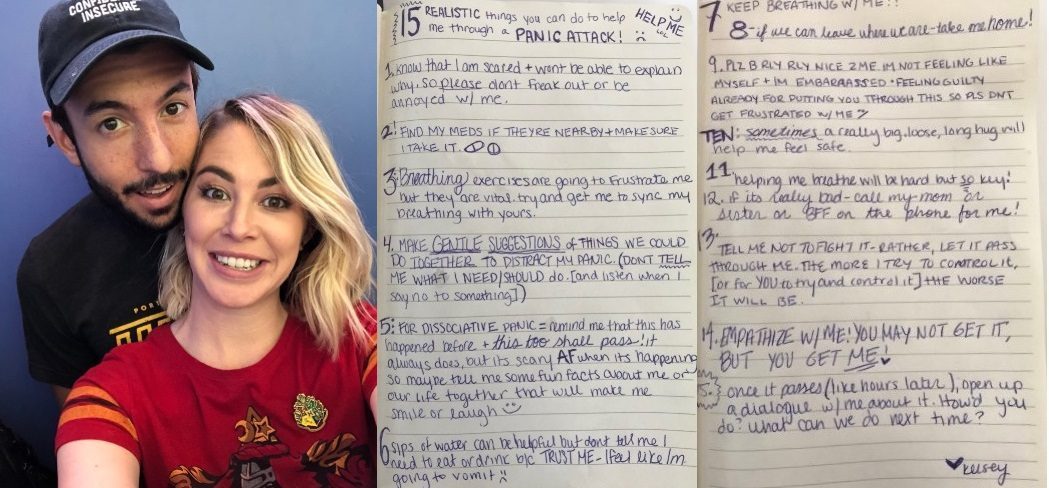 CONFID
INSECURE
PORT
15 REALISTIC things you can do to help
me through a PANIC ATTACK!
HELP
ME
LOL
1. know that I am scared + wont be able to explain
why. so please dont freak out or be
annoyed w/ me.
2: FIND MY MEDS IF THEYRE NEARBY + MAKE SURE
I TAKE IT.
3: Breathing exercises are going to frustrate me
but they are vital. try and get me to sync my
breathing with yours.
4. MAKE GENTLE SUGGESTIONS of THINGS WE COULD
DO TOGETHER TO DISTRACT MY PANIC. (DONT TELL
ME WHAT I NEED/SHOULD do. [and listen when I
say no to something])
5: FOR DISSOCIATIVE PANIC = remind me that this has
happened before + this too shall pass! it
always does, but its scary AF when its happening
so maybe tell me some fun facts about me or
our life together that will make me
smile or laugh
6 sips of water can be helpful but dont tell me I
need to eat or drink b/c TRUST ME - I feel like Im
going to vomit
7 KEEP BREATHING W/ ME!!
8 - if we can leave where we are - take me home!
9. PLZ B RLY RLY NICE 2 ME. IM NOT FEELING LIKE
MYSELF + IM EMBARAASSED + FEELING GUILTY
ALREADY FOR PUTTING YOU THROUGH THIS SO PLS DNT
GET FRUSTRATED W/ ME
TEN: sometimes a really big, loose, long hug will
help me feel safe.
11 helping me breathe will be hard but so key!
12. if its really bad - call my mom or
sister or BFF on the phone for me!
13.
TELL ME NOT TO FIGHT IT - RATHER, LET IT PASS
THROUGH ME. THE MORE I TRY TO CONTROL IT,
[or for YOU to try and control it] THE WORSE
IT WILL BE.
14. EMPATHIZE W/ ME! YOU MAY NOT GET IT,
BUT YOU GET ME!
15: once it passes (like hours later), open up
a dialogue w/ me about it. How'd you
do? what can we do next time?
♥ Kelsey